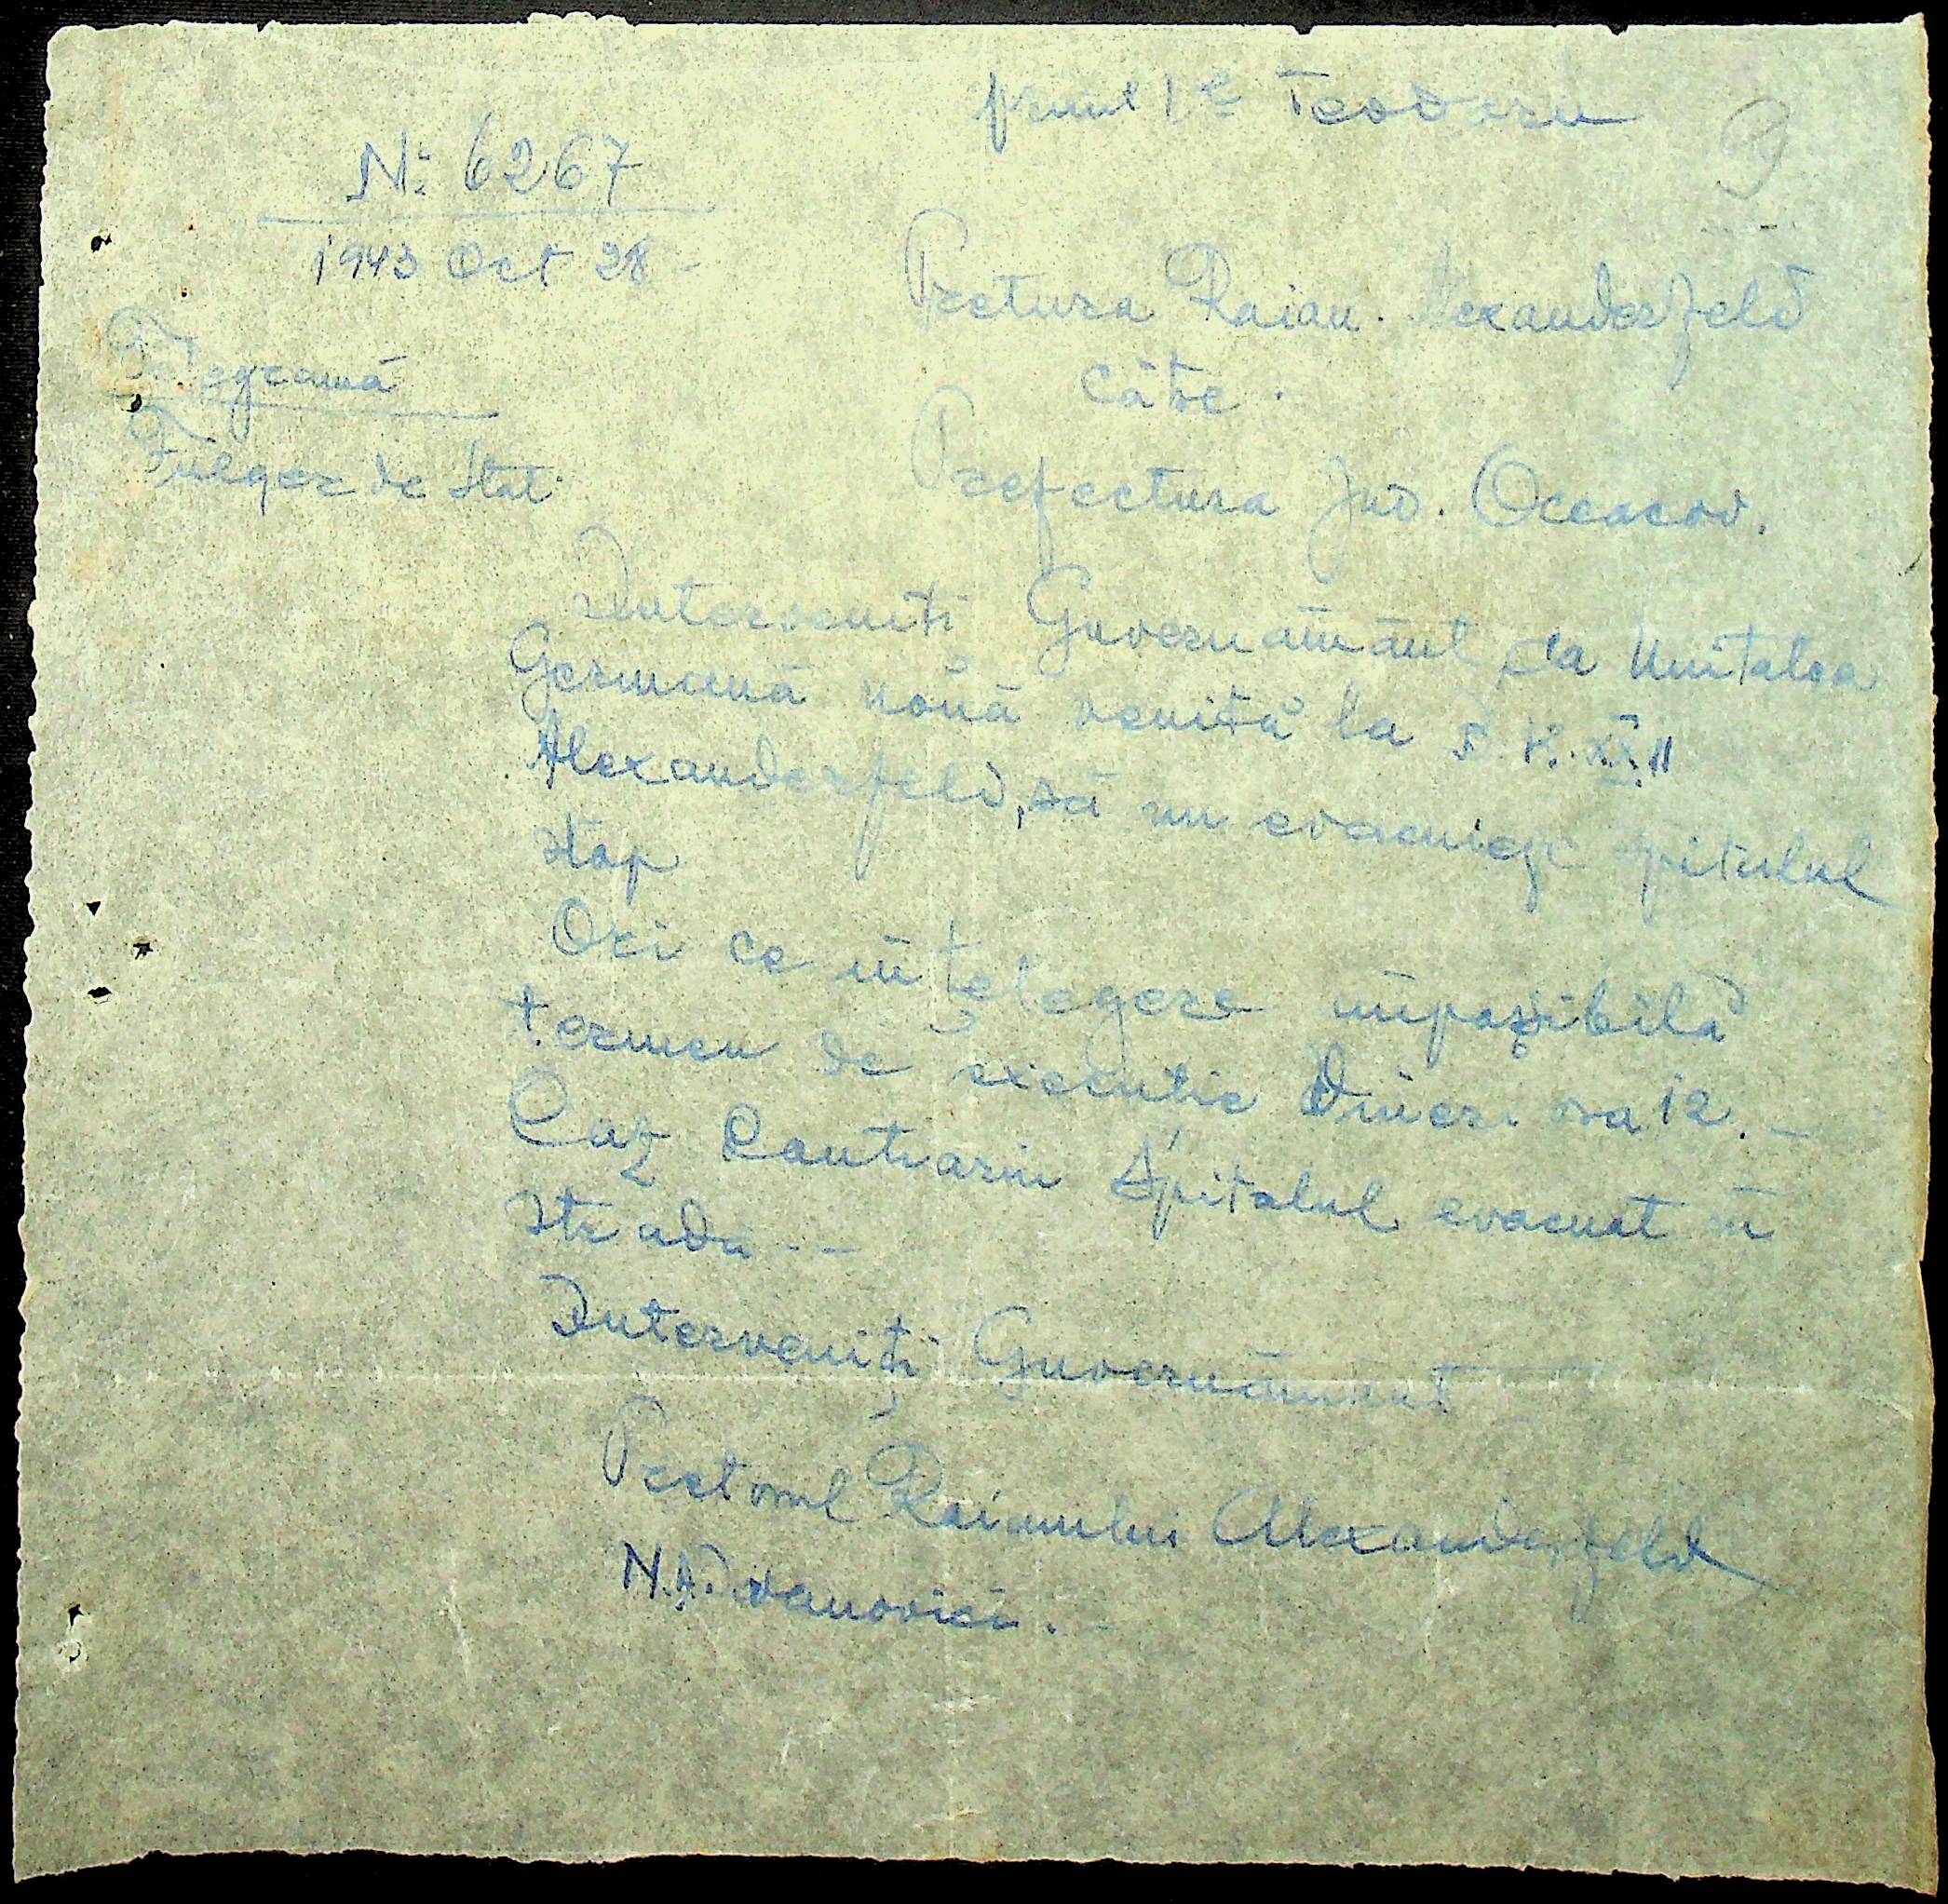 primit Teodoru
9
No 6267
1943 Oct 28 -
Pretura Raion. Alexanderfeld
Telegramă
Cătře.
Fulger de Stat.
Prefectura Jud. Oceacov.
Interveniti Guvernământ, la Unitatea
Germană nouă venită la
Alexanderfeld, să nu evacuieze spitalul
stop
Ori ce înțelegere imposibilă
termen de executie Vineri ora 12. -
Caz Contrariu Spitalul evacuat în
stradă --
Interveniți Guvernământ
Pretorul Raionului Alexanderfeld
N.A. Ivanovici. -